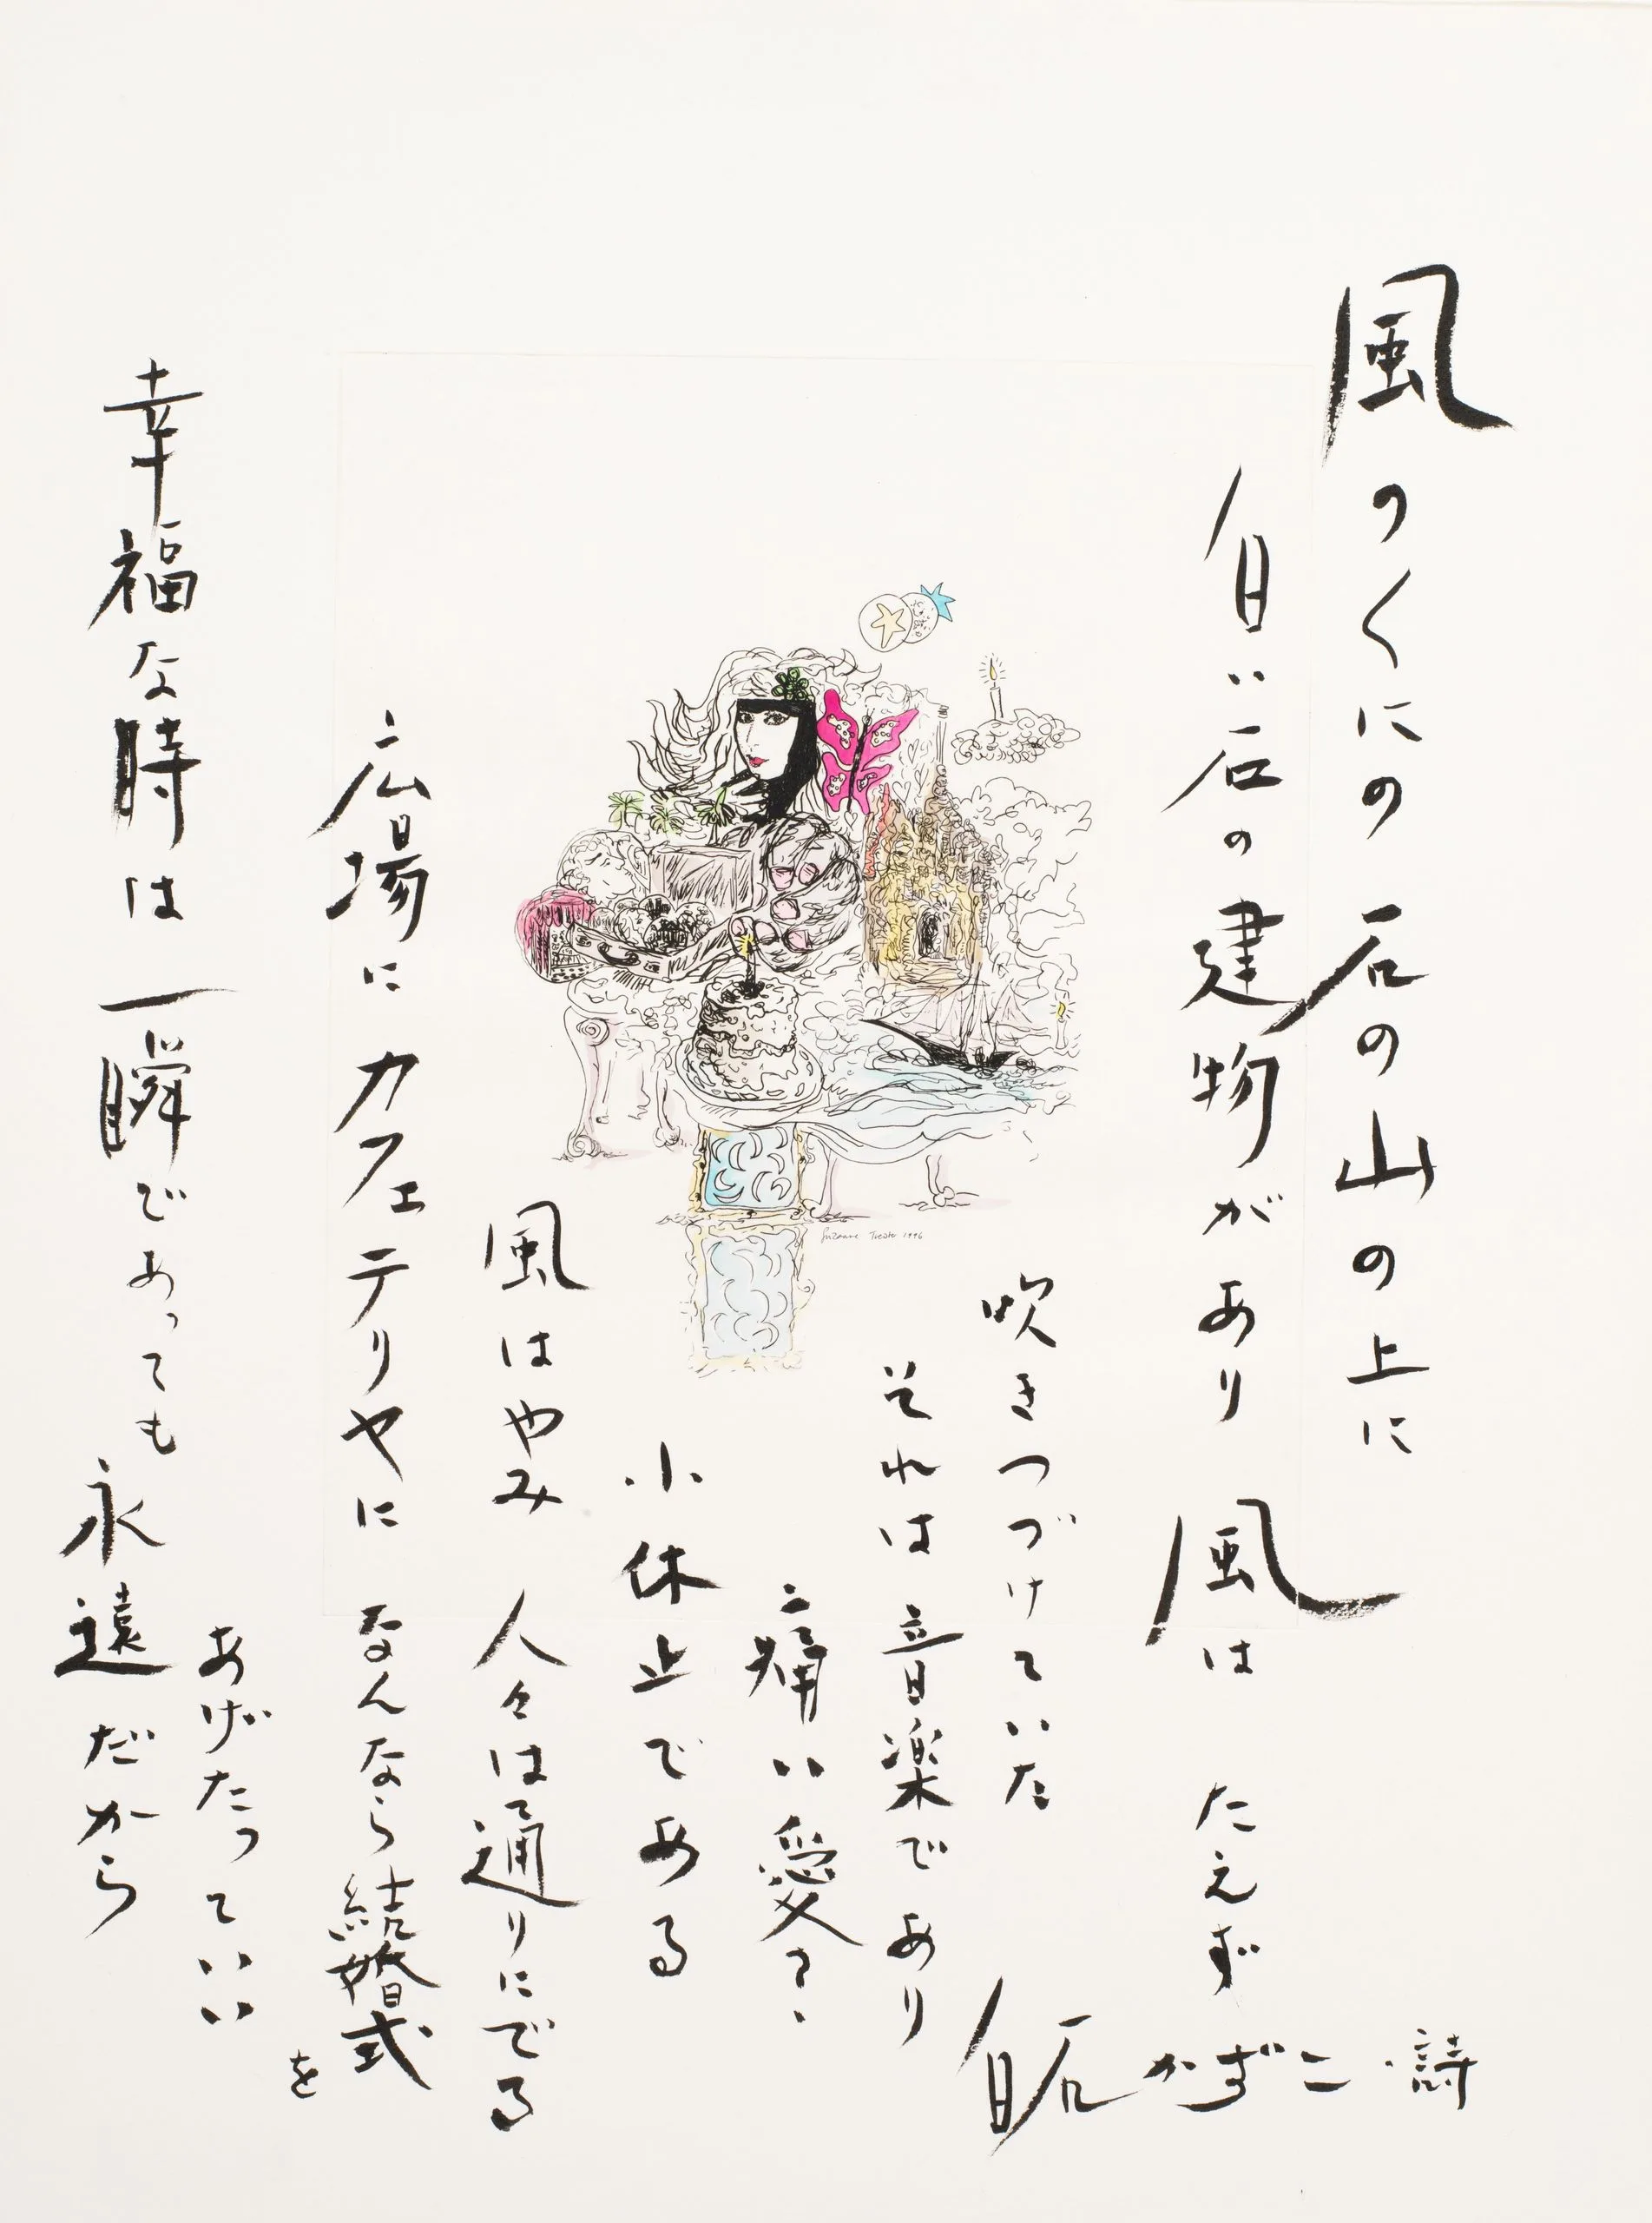 風のくにの石の山の上に
白い石の建物があり
風は たえず
吹きつづけていた
それは音楽であり
痛い愛?、
小休止である
風はやみ 人々は通りにでる
広場にカフェテリヤに なんなら結婚式
を
あげたっていい
幸福な時は一瞬であっても
永遠だから
白石かずこ・詩
Suzanne Treister 1996